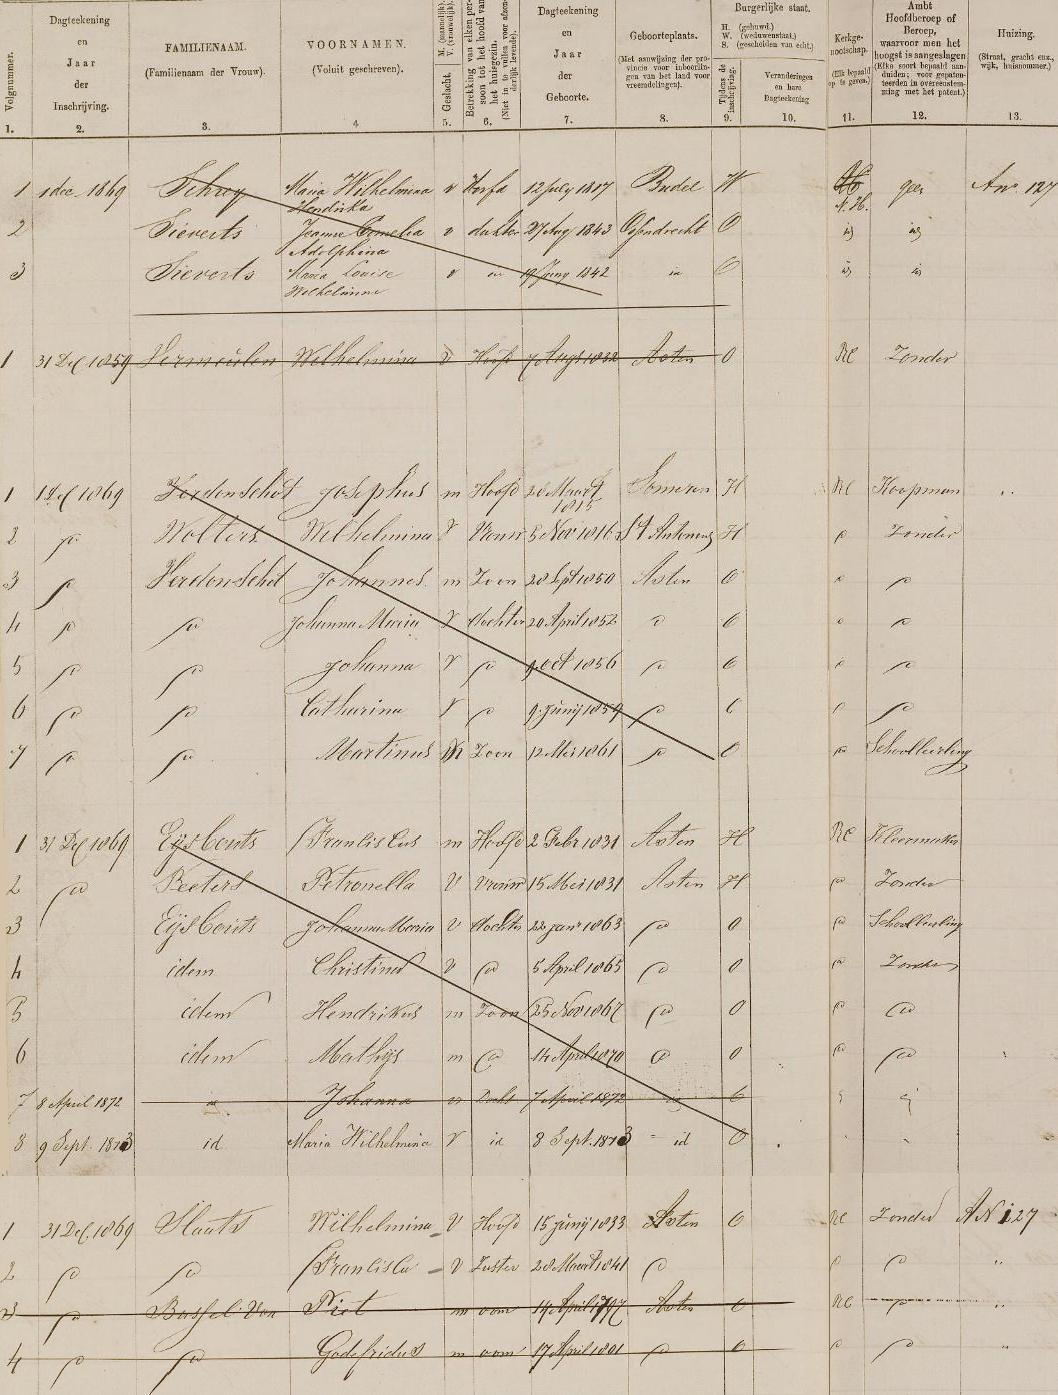 Volgnummer.
Dagteekening en Jaar der Inschrijving.
FAMILIENAAM. (Familienaam der Vrouw).
VOORNAMEN. (Voluit geschreven).
Geslacht. M. (mannelijk). V. (vrouwelijk).
Betrekking van elken persoon tot het hoofd van het huisgezin.
Dagteekening en Jaar der Geboorte.
Geboorteplaats. (Met aanwijzing der provincie voor inboorlingen van het land voor vreemdelingen).
Burgerlijke staat. H. (gehuwd.) W. (weduwenstaat.) S. (gescheiden van echt.)
Tijdens de inschrijving.
Veranderingen en hare Dagteekening
Kerkgenootschap. (Elk bepaald op te geven.)
Ambt Hoofdberoep of Beroep, waarvoor men het hoogst is aangeslagen (Elke soort bepaald aanduiden; voor gepatenteerden in overeenstemming met het patent.)
Huizing. (Straat, gracht enz., wijk, huisnommer.)
1. 2. 3. 4 5. 6. 7. 8. 9. 10. 11. 12. 13.
1 1 dec. 1869 Maria Wilhelmina Hendrika v 12 July 1817 Budel W N.H. geen An. 127
2 Sieverts Jeanne Cornelia Adolphina v dochter 27 Aug 1843 O
3 Sieverts Maria Louise Wilhelmina v 1842 O
1 31 Dec 1859 Vermeulen Wilhelmina V Hoofd 7 Augs 1832 Asten O RC Zonder
1 1 Dec 1869 Josephus m Hoofd 28 Maart 1815 Someren H RC Koopman
2 Wolters Wilhelmina V Vrouw 5 Nov 1816 St Antonus H Zonder
3 Johannes m Zoon 28 Sept 1850 Asten O
4 Johanna Maria V dochter 20 April 1852 O
5 Johanna V Oct 1856 O
6 Catharina V 9 Junij 1859
7 Martinus M Zoon 12 Mei 1861 O Schoolleerling
1 31 Dec 1869 Eijsbouts Franciscus m Hoofd 2 Febr 1831 Asten H RC Kloermaker
2 Peeters Petronella V Vrouw 15 Mei 1831 Asten H Zonder
3 Eijsbouts Johanna Maria V dochter 22 janr 1863 O Schoolleerling
4 idem Christina V 5 April 1865 O Zonder
5 idem Hendrikus m Zoon 25 Nov 1867 O
6 idem Mathijs m 14 April 1870 O
7 8 April 1872 Johanna 7 April 1872
8 9 Sept. 1873 id Maria Wilhelmina V id 8 Sept. 1873 id O
1 31 Dec. 1869 Slaats Wilhelmina V Hoofd 15 junij 1833 Asten O RC Zonder A N 127
2 Francisca V Zuster 28 Maart 1841
3 Bussel Van Piet m oom 14 April 1797 Asten O RC
4 Godefridus m oom 17 April 1801 O